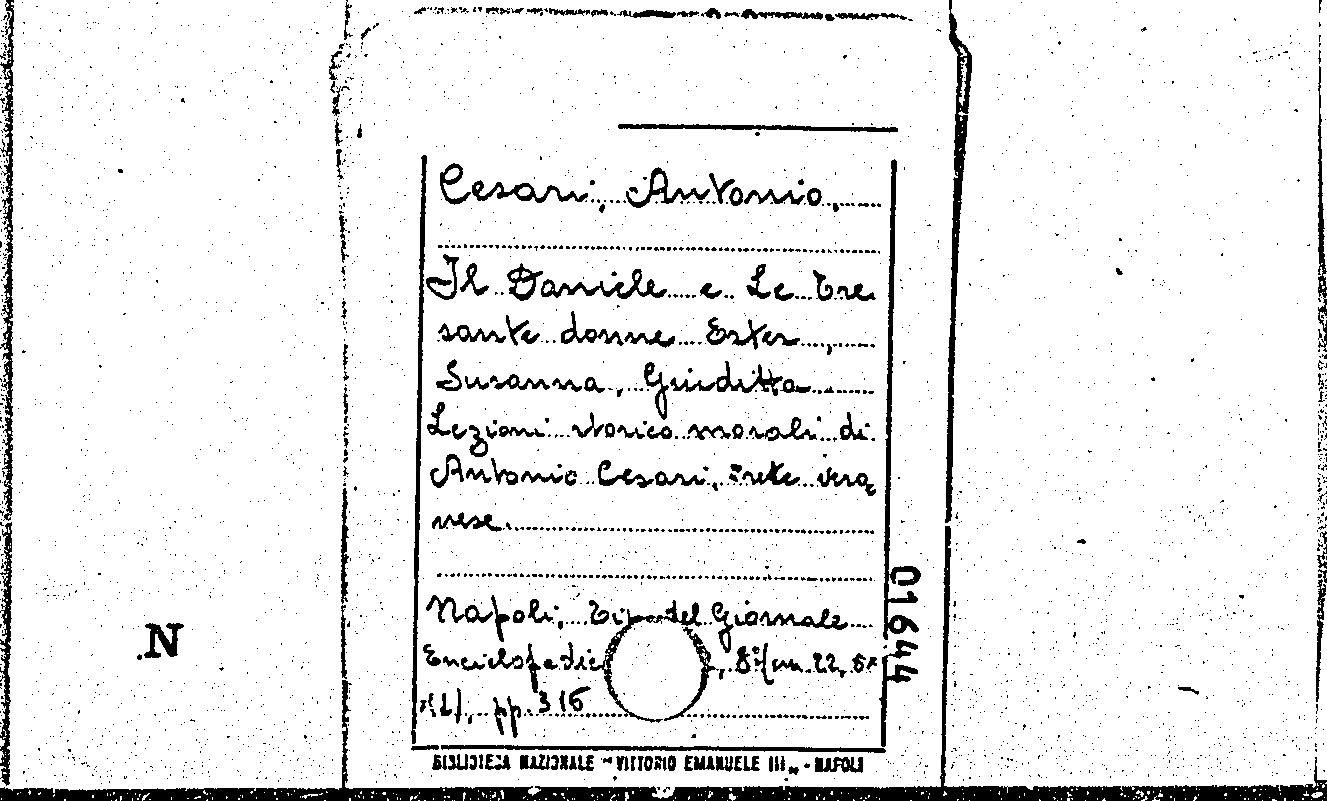 Cesari, Antonio,
Il Daniele e Le Tre
sante donne Ester,
Susanna, Giuditta
Lezioni storico morali di
Antonio Cesari, Prete vero
nese.
Napoli, Tip. del Giornale
Enciclopedico, 8°(cm. 22,5x
pp. 316
01644
N
BIBLIOTECA NAZIONALE "VITTORIO EMANUELE III" - NAPOLI